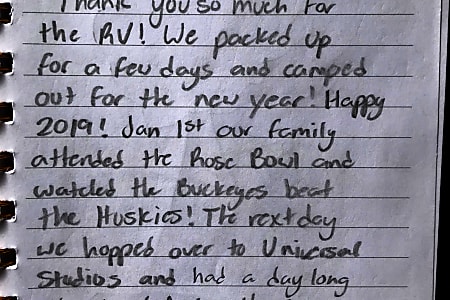 Thank you so much for
the RV! We packed up
for a few days and camped
out for the new year! Happy
2019! Jan 1st our family
attended the Rose Bowl and
watched the Buckeyes beat
the Huskies! The next day
we hopped over to Universal
Studios and had a day long